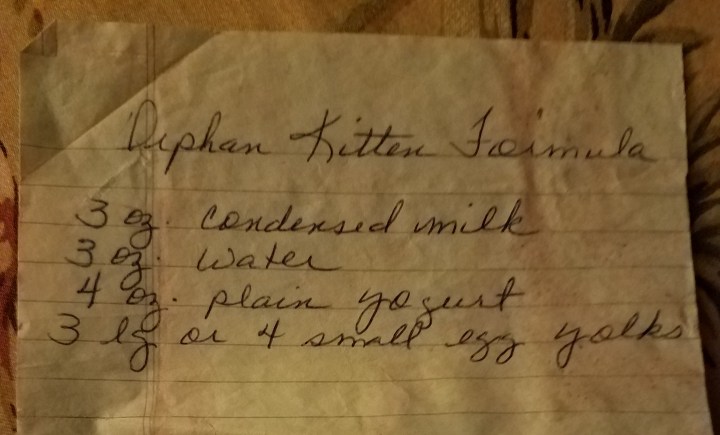 Orphan Kitten Formula
3 oz. condensed milk
3 oz. water
4 oz. plain yogurt
3 lg or 4 small egg yolks